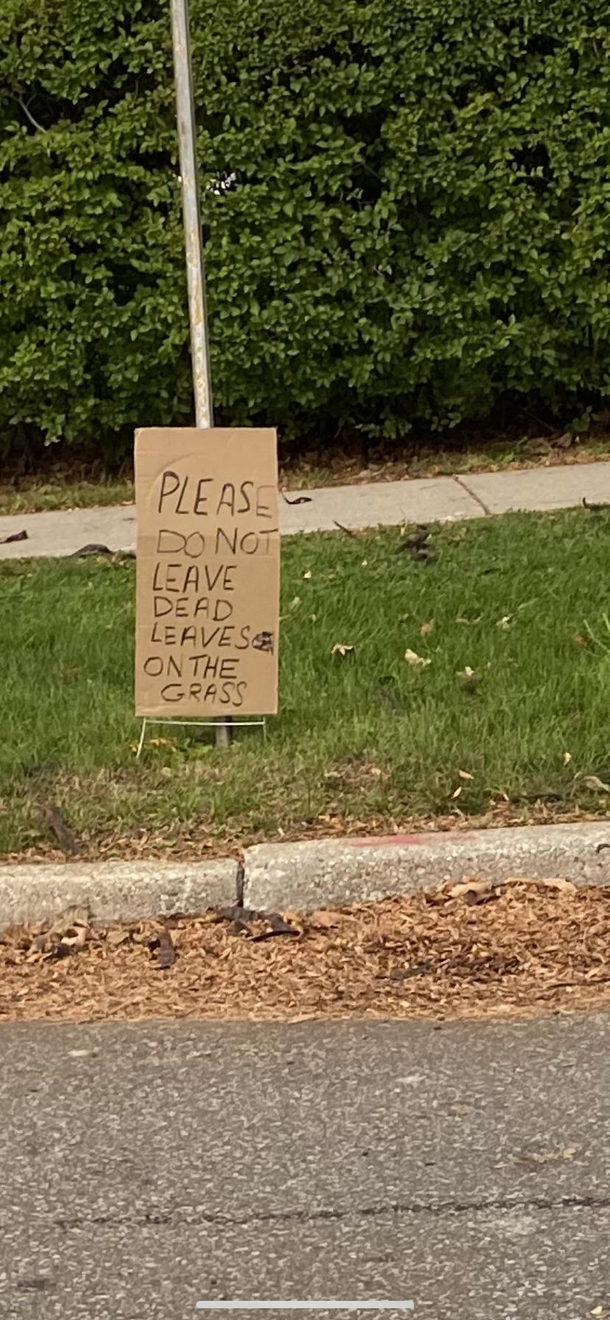 PLEASE
DO NOT
LEAVE
DEAD
LEAVES
ON THE
GRASS